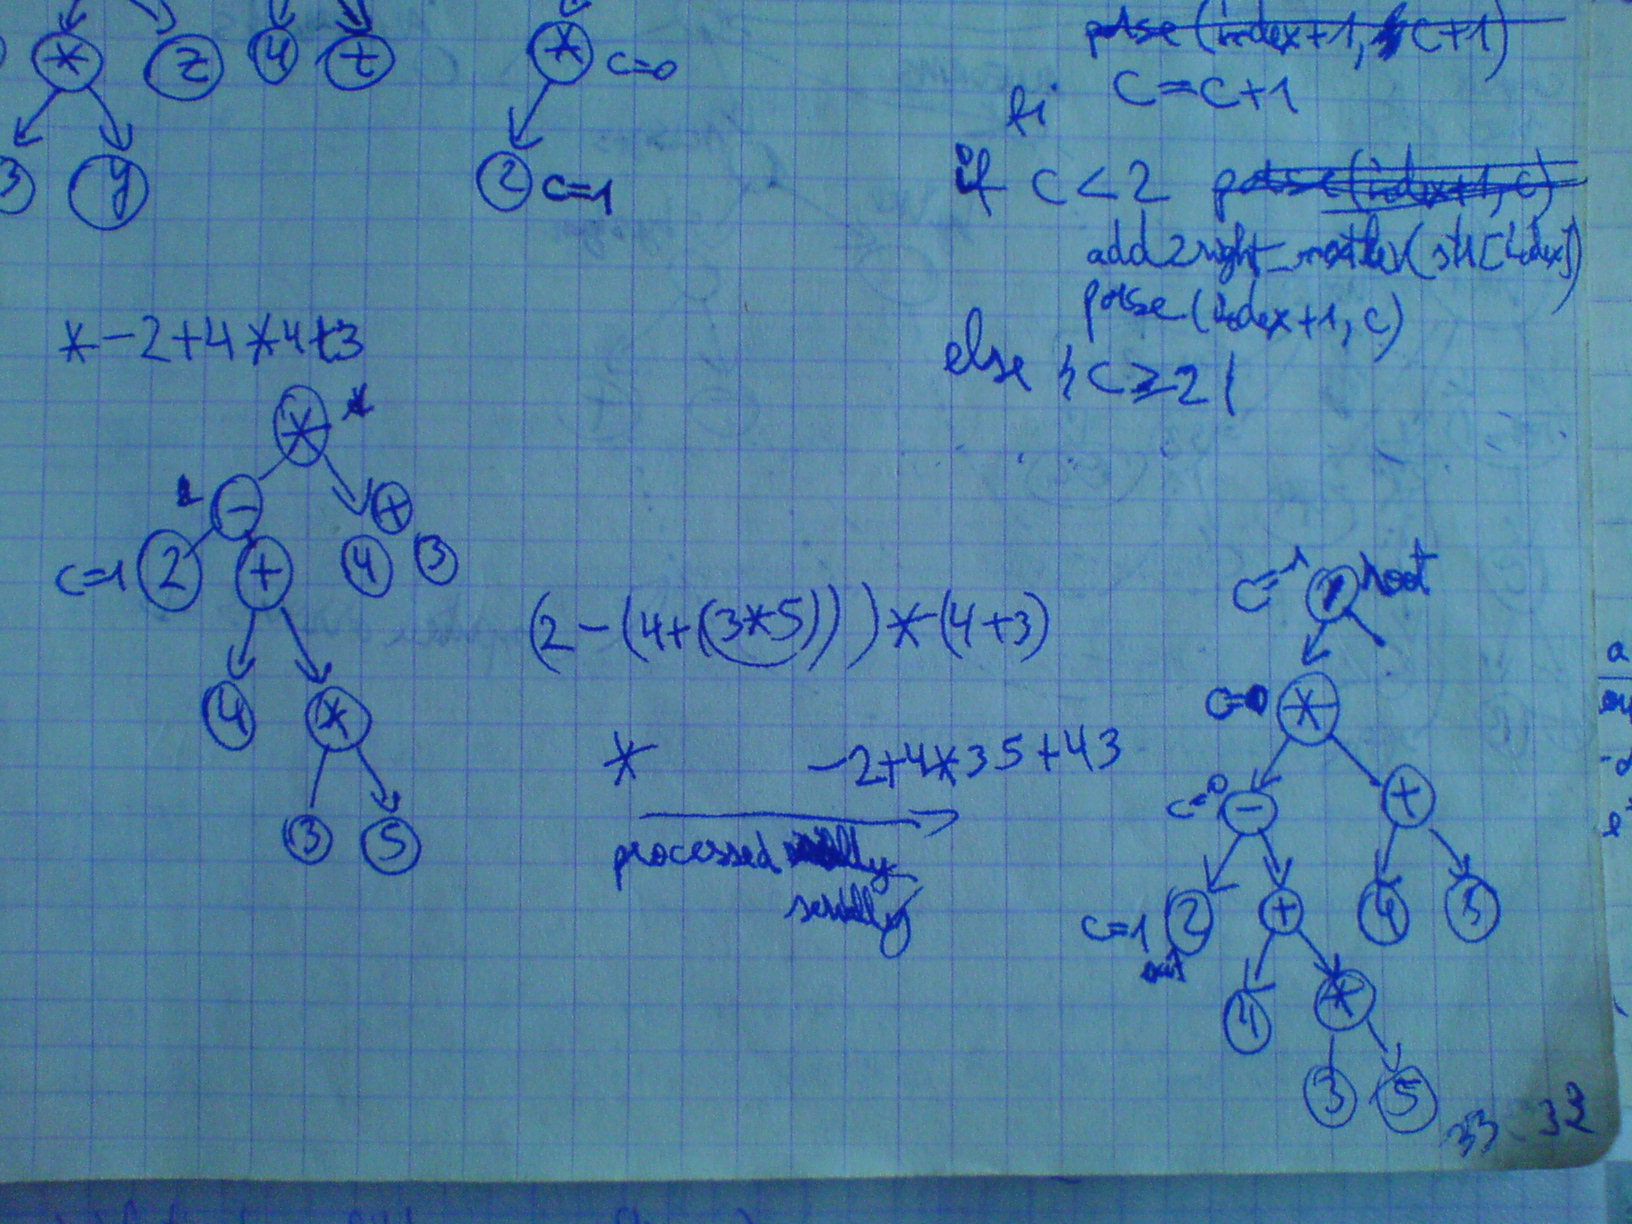 * z 4 t
3 y
* c=0
2 c=1
parse(index+1, c+1)
c=c+1
fi
if c<2 parse(index+1, c)
add2right_most
parse(index+1, c)
else c≥2
*-2+4*4+3
*
- +
c=1 2 + 4 3
4 *
3 5
(2-(4+(3*5)))*(4+3)
* -2+4*35+43
processed
serially
c=-1 root
c=0 *
c=0 - +
c=1 2 + 4 3
exit
4 *
3 5
33 32